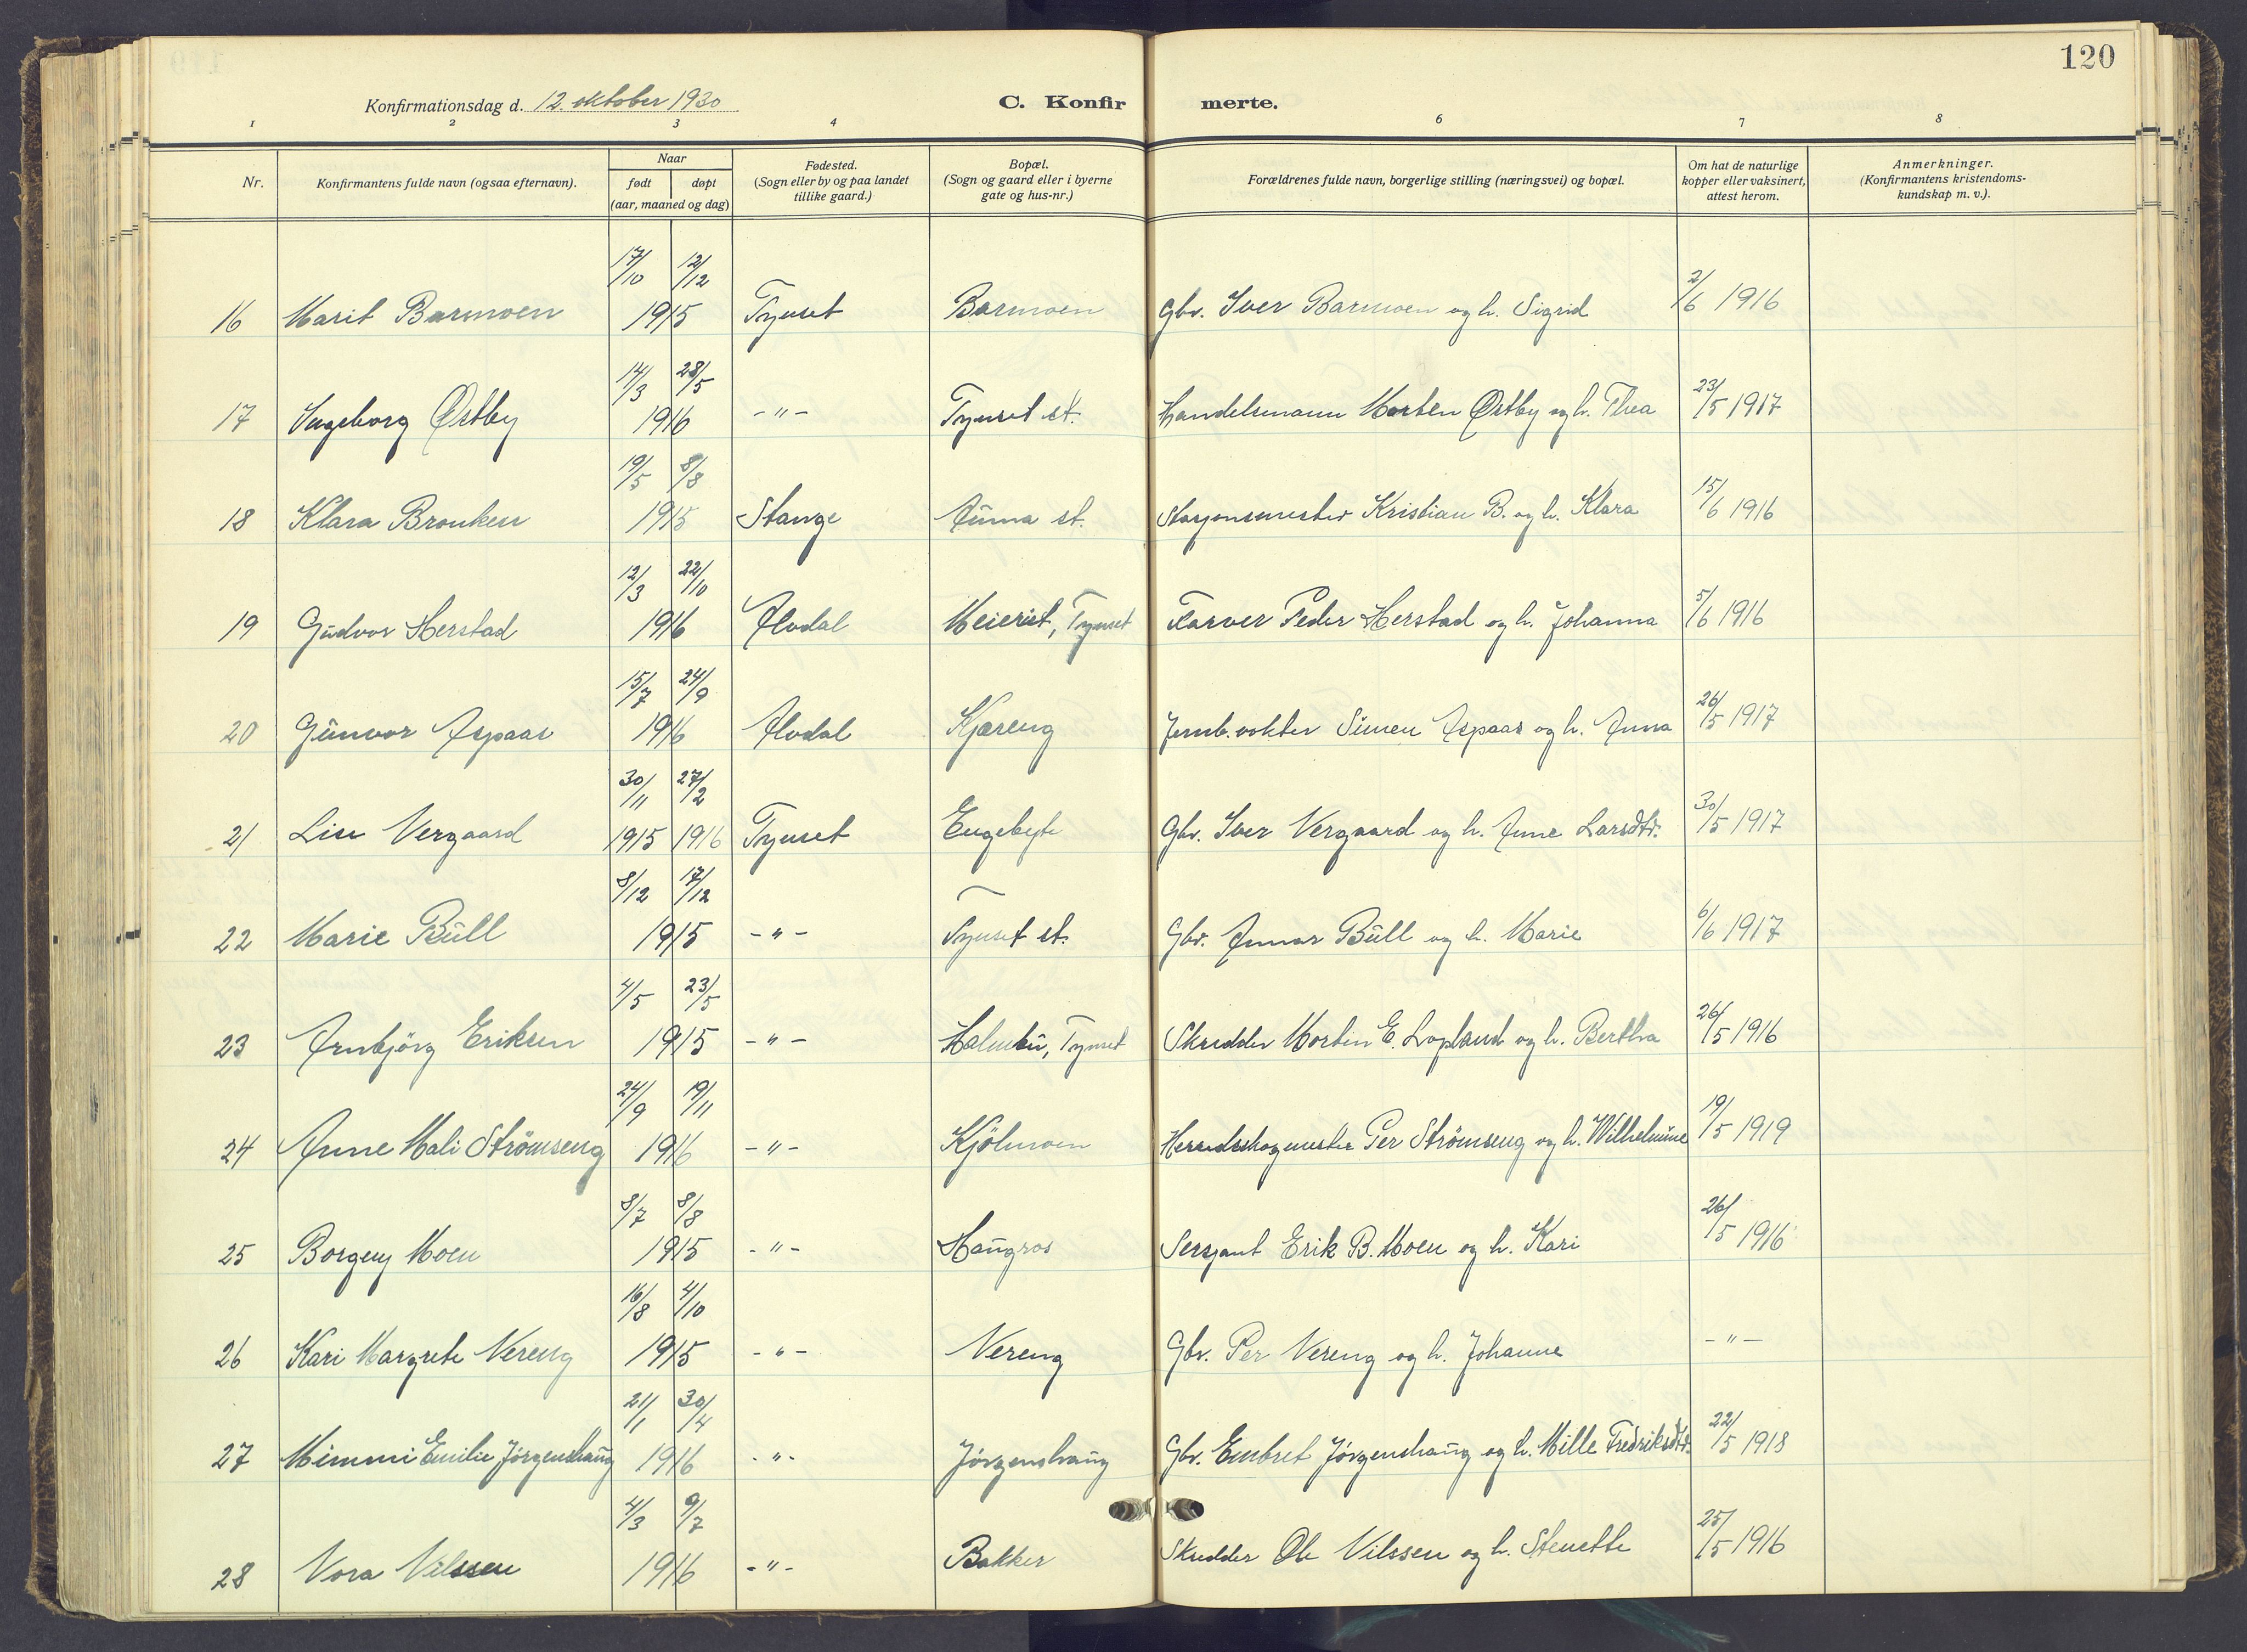 120
Konfirmationsdag d. 12. oktober 1930
C. Konfirmerte.
1 2 3 4 6 7 8
Nr.
Konfirmantens fulde navn (ogsaa efternavn).
Naar
født døpt
(aar, maaned og dag)
Fødested.
(Sogn eller by og paa landet
tillike gaard.)
Bopæl.
(Sogn og gaard eller i byerne
gate og hus-nr.)
Forældrenes fulde navn, borgerlige stilling (næringsvei) og bopæl.
Om hat de naturlige
kopper eller vaksinert,
attest herom.
Anmerkninger.
(Konfirmantens kristendoms-
kundskap m. v.).
17/10 12/12
16 Marit Barmoen 1915 Tynset Barmoen Gbr. Iver Barmoen og h. Sigrid 2/6 1916
14/3 28/5
17 Ingeborg Østby 1916 -"- Tynset st. Handelsmann Morten Østby og h. Thea 23/5 1917
19/5 8/8
18 Klara Brouken 1915 Stange Auma st. Stasjonsmester Kristian B. og h. Klara 15/6 1916
12/3 22/10
19 Gudvor Herstad 1916 Alvdal Meieriet, Tynset Farver Peder Herstad og h. Johanna 5/6 1916
15/7 24/9
20 Gunvor Aspaas 1916 Alvdal Kjæreng Jernb.vokter Simen Aspaas og h. Anna 26/5 1917
30/11 27/2
21 Lise Vergaard 1915 1916 Tynset Gbr. Iver Vergaard og h. Anne Larsdtr. 30/5 1917
8/12 17/12
22 Marie Büll 1915 -"- Tynset st. Gbr. Gunnar Büll og h. Marie 6/6 1917
4/5 23/5
23 Arnbjörg Eriksen 1915 -"- Tynset Skredder Morten E. Lopland og h. Bertha 26/5 1916
24/9 19/11
24 Anne Mali Strömseng 1916 -"- Kjölmoen Herredsskogmester Per Strömseng og h. Wilhelmine 19/5 1919
8/7 8/8
25 Borgny Moen 1915 -"- Haugros Sersjant Erik B. Moen og h. Kari 26/5 1916
16/8 4/10
26 Kari Margrete Nereng 1915 -"- Nereng Gbr. Per Nereng og h. Johanne -"-
21/1 30/4
27 Mimmi Emilie Jörgenshaug 1916 -"- Jörgenshaug Gbr. Embret Jörgenshaug og h. Mille Fredriksdtr. 22/5 1918
4/3 9/7
28 Nora Nilssen 1916 -"- Bakker Skredder Ole Nilssen og h. Stenette 25/5 1916